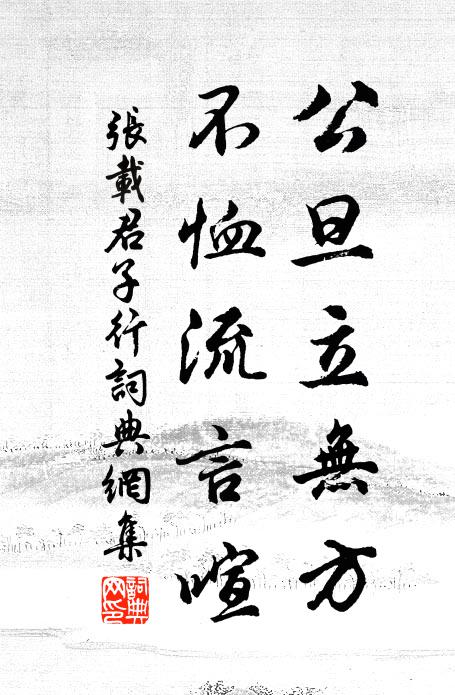 公旦立無方
不恤流言喧
張載君子行詞典網集
詞典
网印